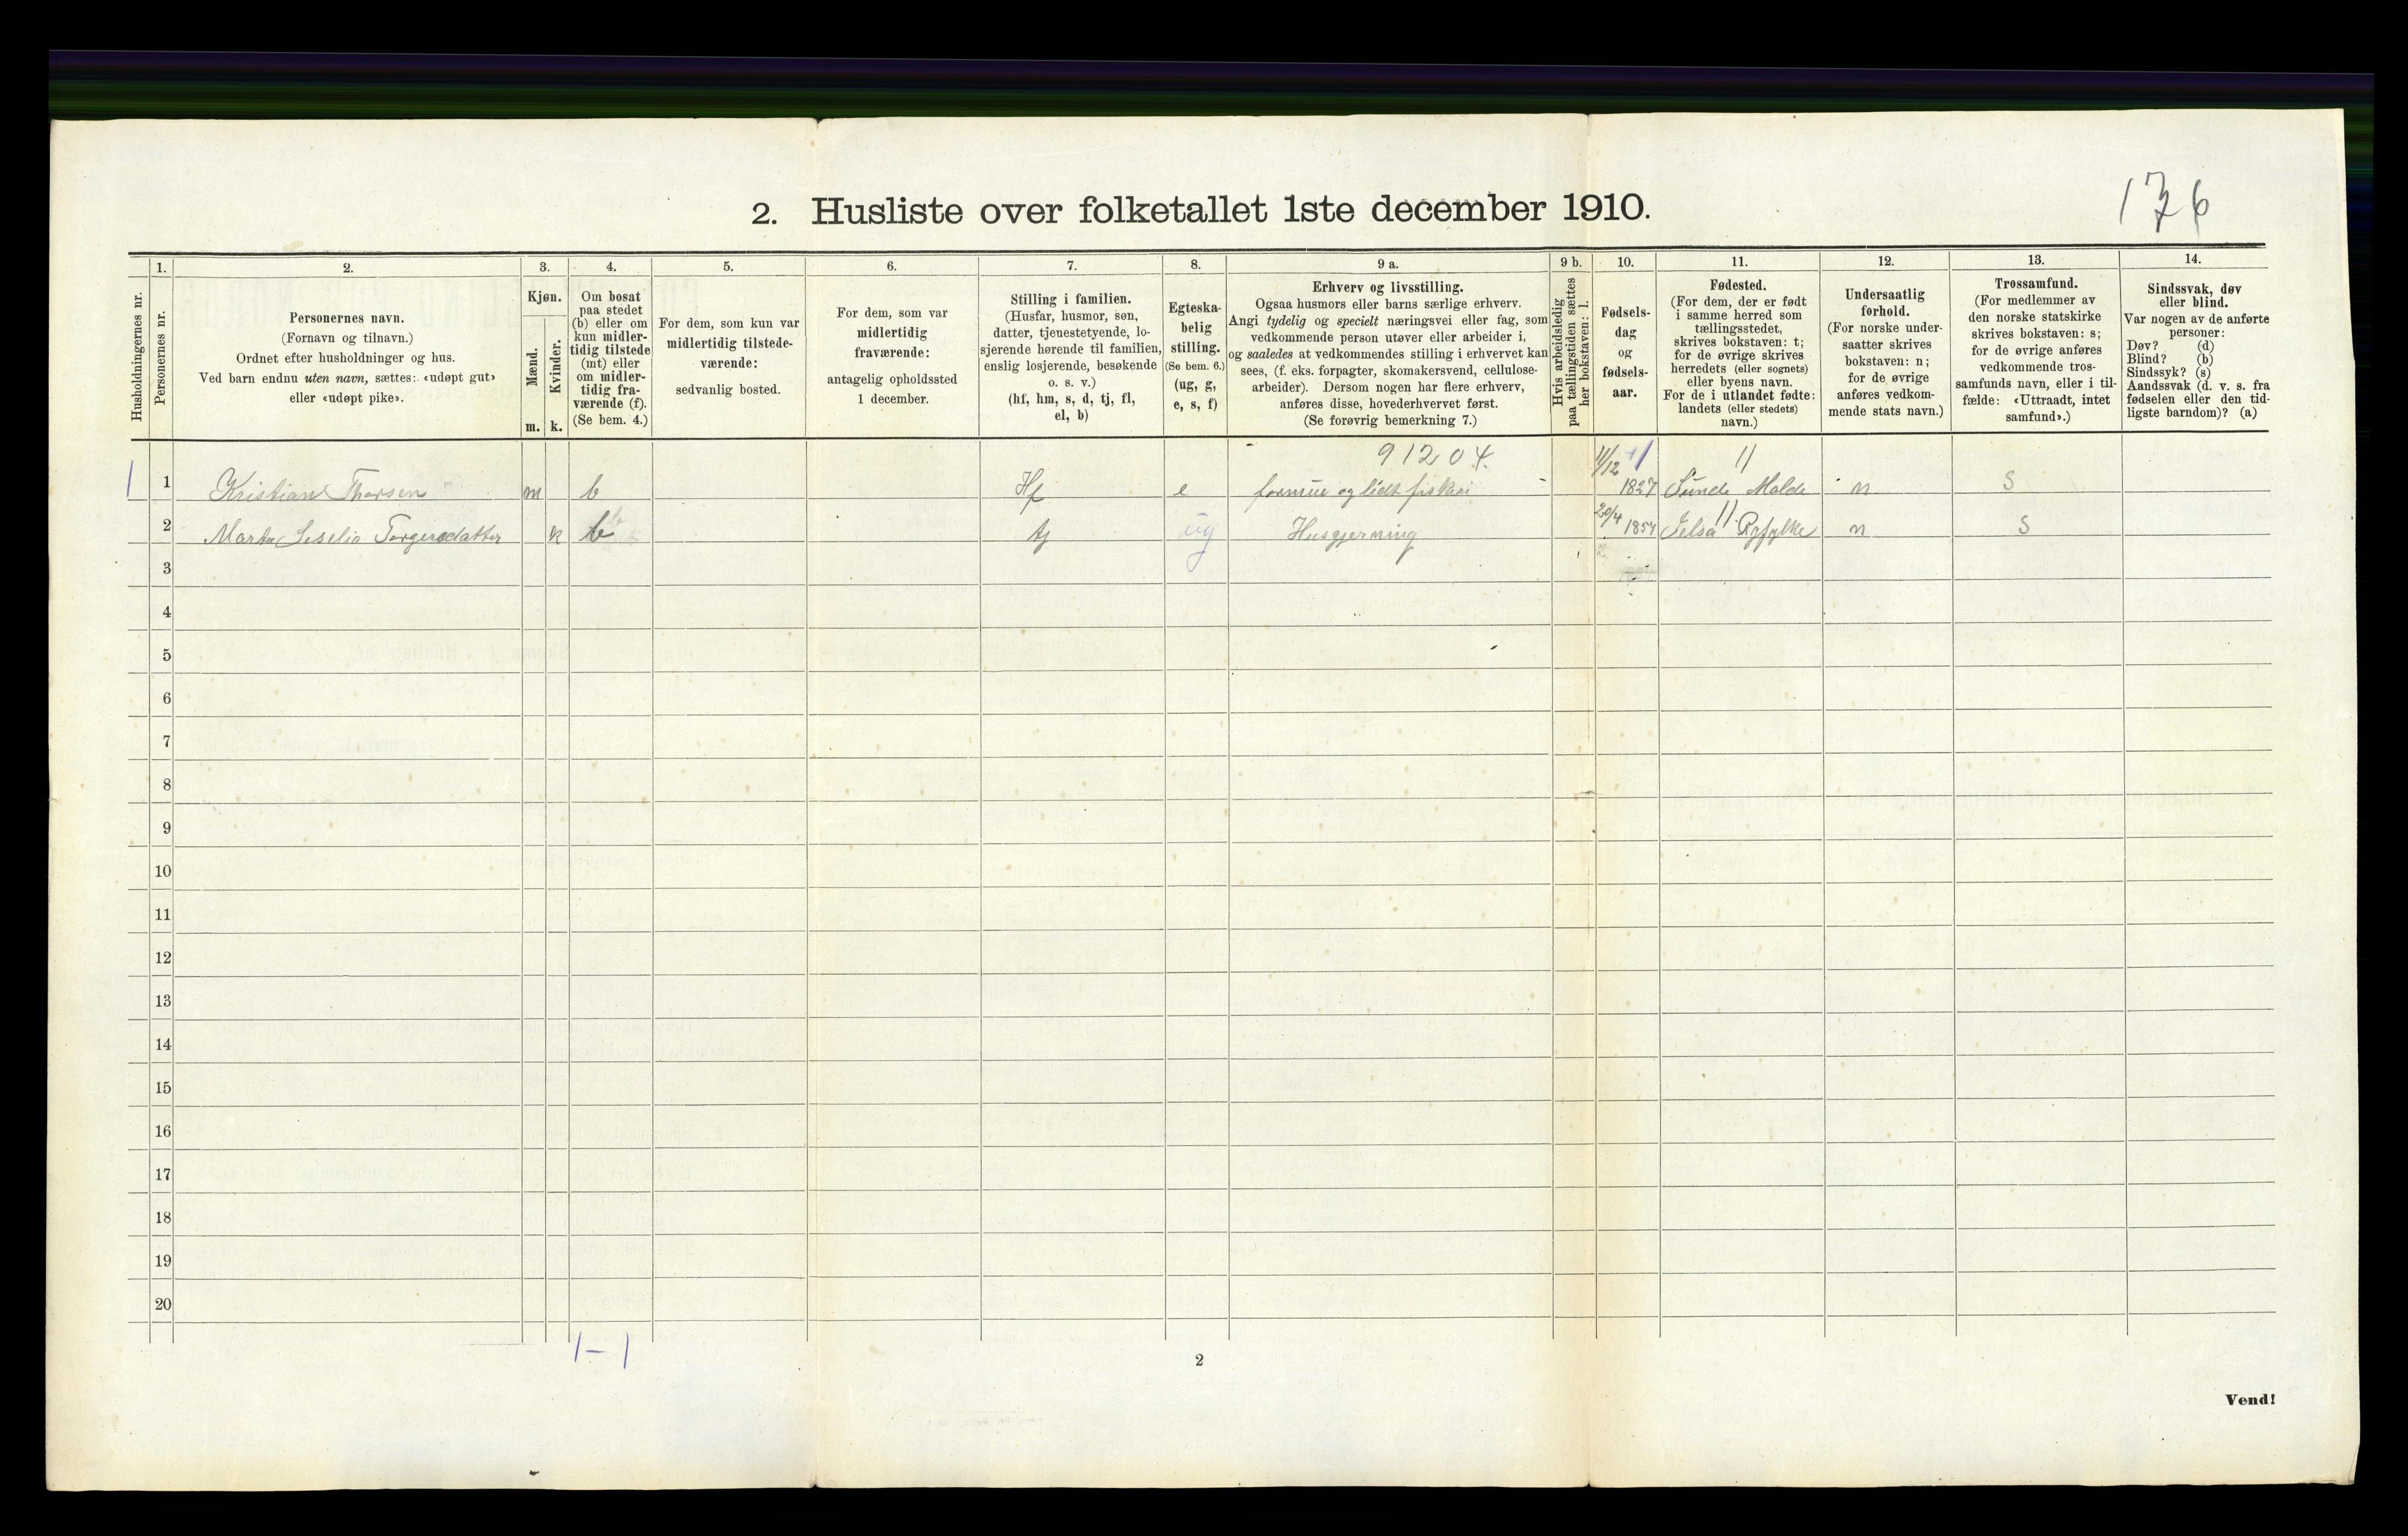 2. Husliste over folketallet 1ste december 1910.
176
Husholdningernes nr.
1.
Personernes nr.
2.
Personernes navn.
(Fornavn og tilnavn.)
Ordnet efter husholdninger og hus.
Ved barn endnu uten navn, sættes: «udøpt gut»
eller «udøpt pike».
3.
Kjøn.
Mænd.
Kvinder.
m. k.
4.
Om bosat
paa stedet
(b) eller om
kun midler-
tidig tilstede
(mt) eller
om midler-
tidig fra-
værende (f).
(Se bem. 4.)
5.
For dem, som kun var
midlertidig tilstede-
værende:
sedvanlig bosted.
6.
For dem, som var
midlertidig
fraværende:
antagelig opholdssted
1 december.
7.
Stilling i familien.
(Husfar, husmor, søn,
datter, tjenestetyende, lo-
sjerende hørende til familien,
enslig losjerende, besøkende
o. s. v.)
(hf, hm, s, d, tj, fl,
el, b)
8.
Egteska-
belig
stilling.
(Se bem. 6.)
(ug, g,
e, s, f)
9 a.
Erhverv og livsstilling.
Ogsaa husmors eller barns særlige erhverv.
Angi tydelig og specielt næringsvei eller fag, som
vedkommende person utøver eller arbeider i,
og saaledes at vedkommendes stilling i erhvervet kan
sees, (f. eks. forpagter, skomakersvend, cellulose-
arbeider). Dersom nogen har flere erhverv,
anføres disse, hovederhvervet først.
(Se forøvrig bemerkning 7.)
9 b.
Hvis arbeidsledig
paa tællingstiden sættes
her bokstaven: l.
10.
Fødsels-
dag
og
fødsels-
aar.
11.
Fødested.
(For dem, der er født
i samme herred som
tællingsstedet,
skrives bokstaven: t;
for de øvrige skrives
herredets (eller sognets)
eller byens navn.
For de i utlandet fødte:
landets (eller stedets)
navn.)
12.
Undersaatlig
forhold.
(For norske under-
saatter skrives
bokstaven: n;
for de øvrige
anføres vedkom-
mende stats navn.)
13.
Trossamfund.
(For medlemmer av
den norske statskirke
skrives bokstaven: s;
for de øvrige anføres
vedkommende tros-
samfunds navn, eller i til-
fælde: «Uttraadt, intet
samfund».)
14.
Sindssvak, døv
eller blind.
Var nogen av de anførte
personer:
Døv? (d)
Blind? (b)
Sindssyk? (s)
Aandssvak (d. v. s. fra
fødselen eller den tid-
ligste barndom)? (a)
91204. 11/12 11
1 1 Kristian Thorsen m b Hf e formue og lidt fiskeri 1827 Sunde Malde n S
20/4 11
2 Marta Seselia Torgersdatter k b tj ug Husgjerning 1854 Jelsa Ryfylke n S
3
4
5
6
7
8
9
10
11
12
13
14
15
16
17
18
19
20
1 – 1
2
Vend!